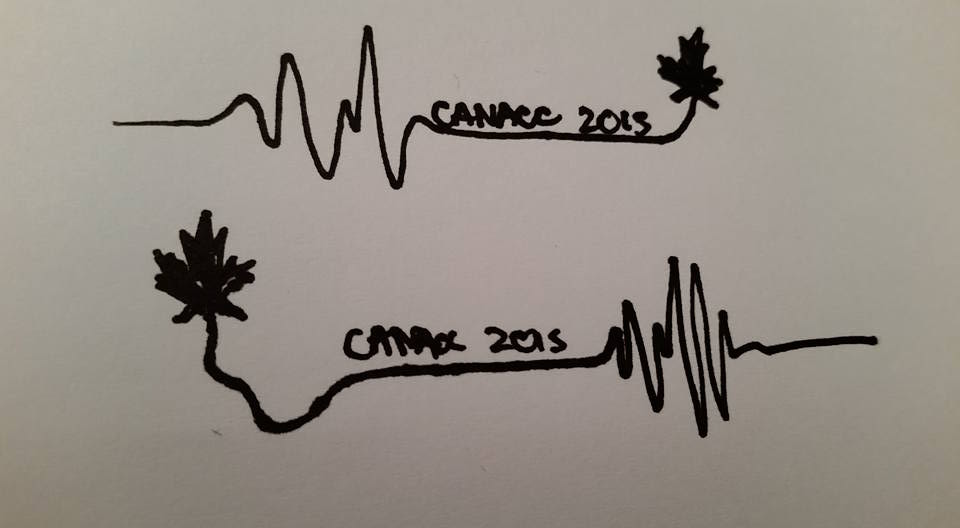 CANACC 2015
CANACC 2015